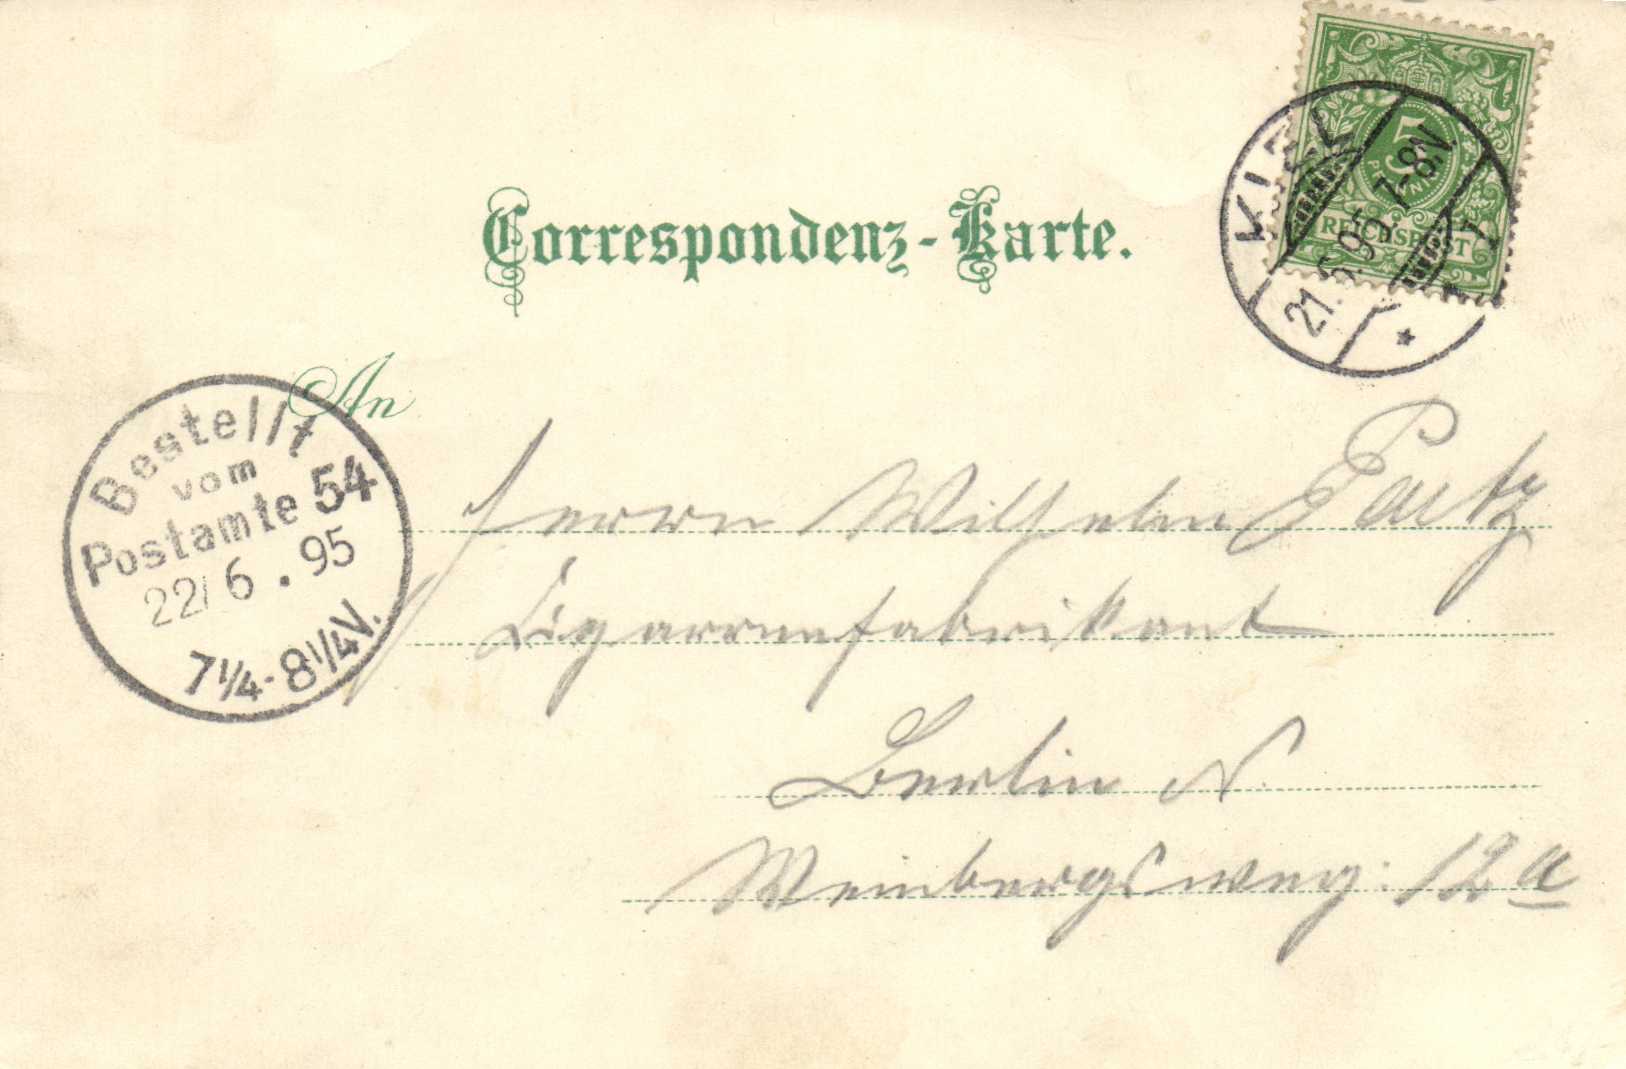 Correspondenz-Karte.
5
PFENNIG
REICHSPOST
KIEL
21.6.95. 7-8N
1
*
An
Bestellt
vom
Postamte 54
22/6.95
7 1/4-8 1/4 V.
Herrn Wilhelm Partz
Cigarrenfabrikant
Berlin N.
Weinbergsweg: 12a